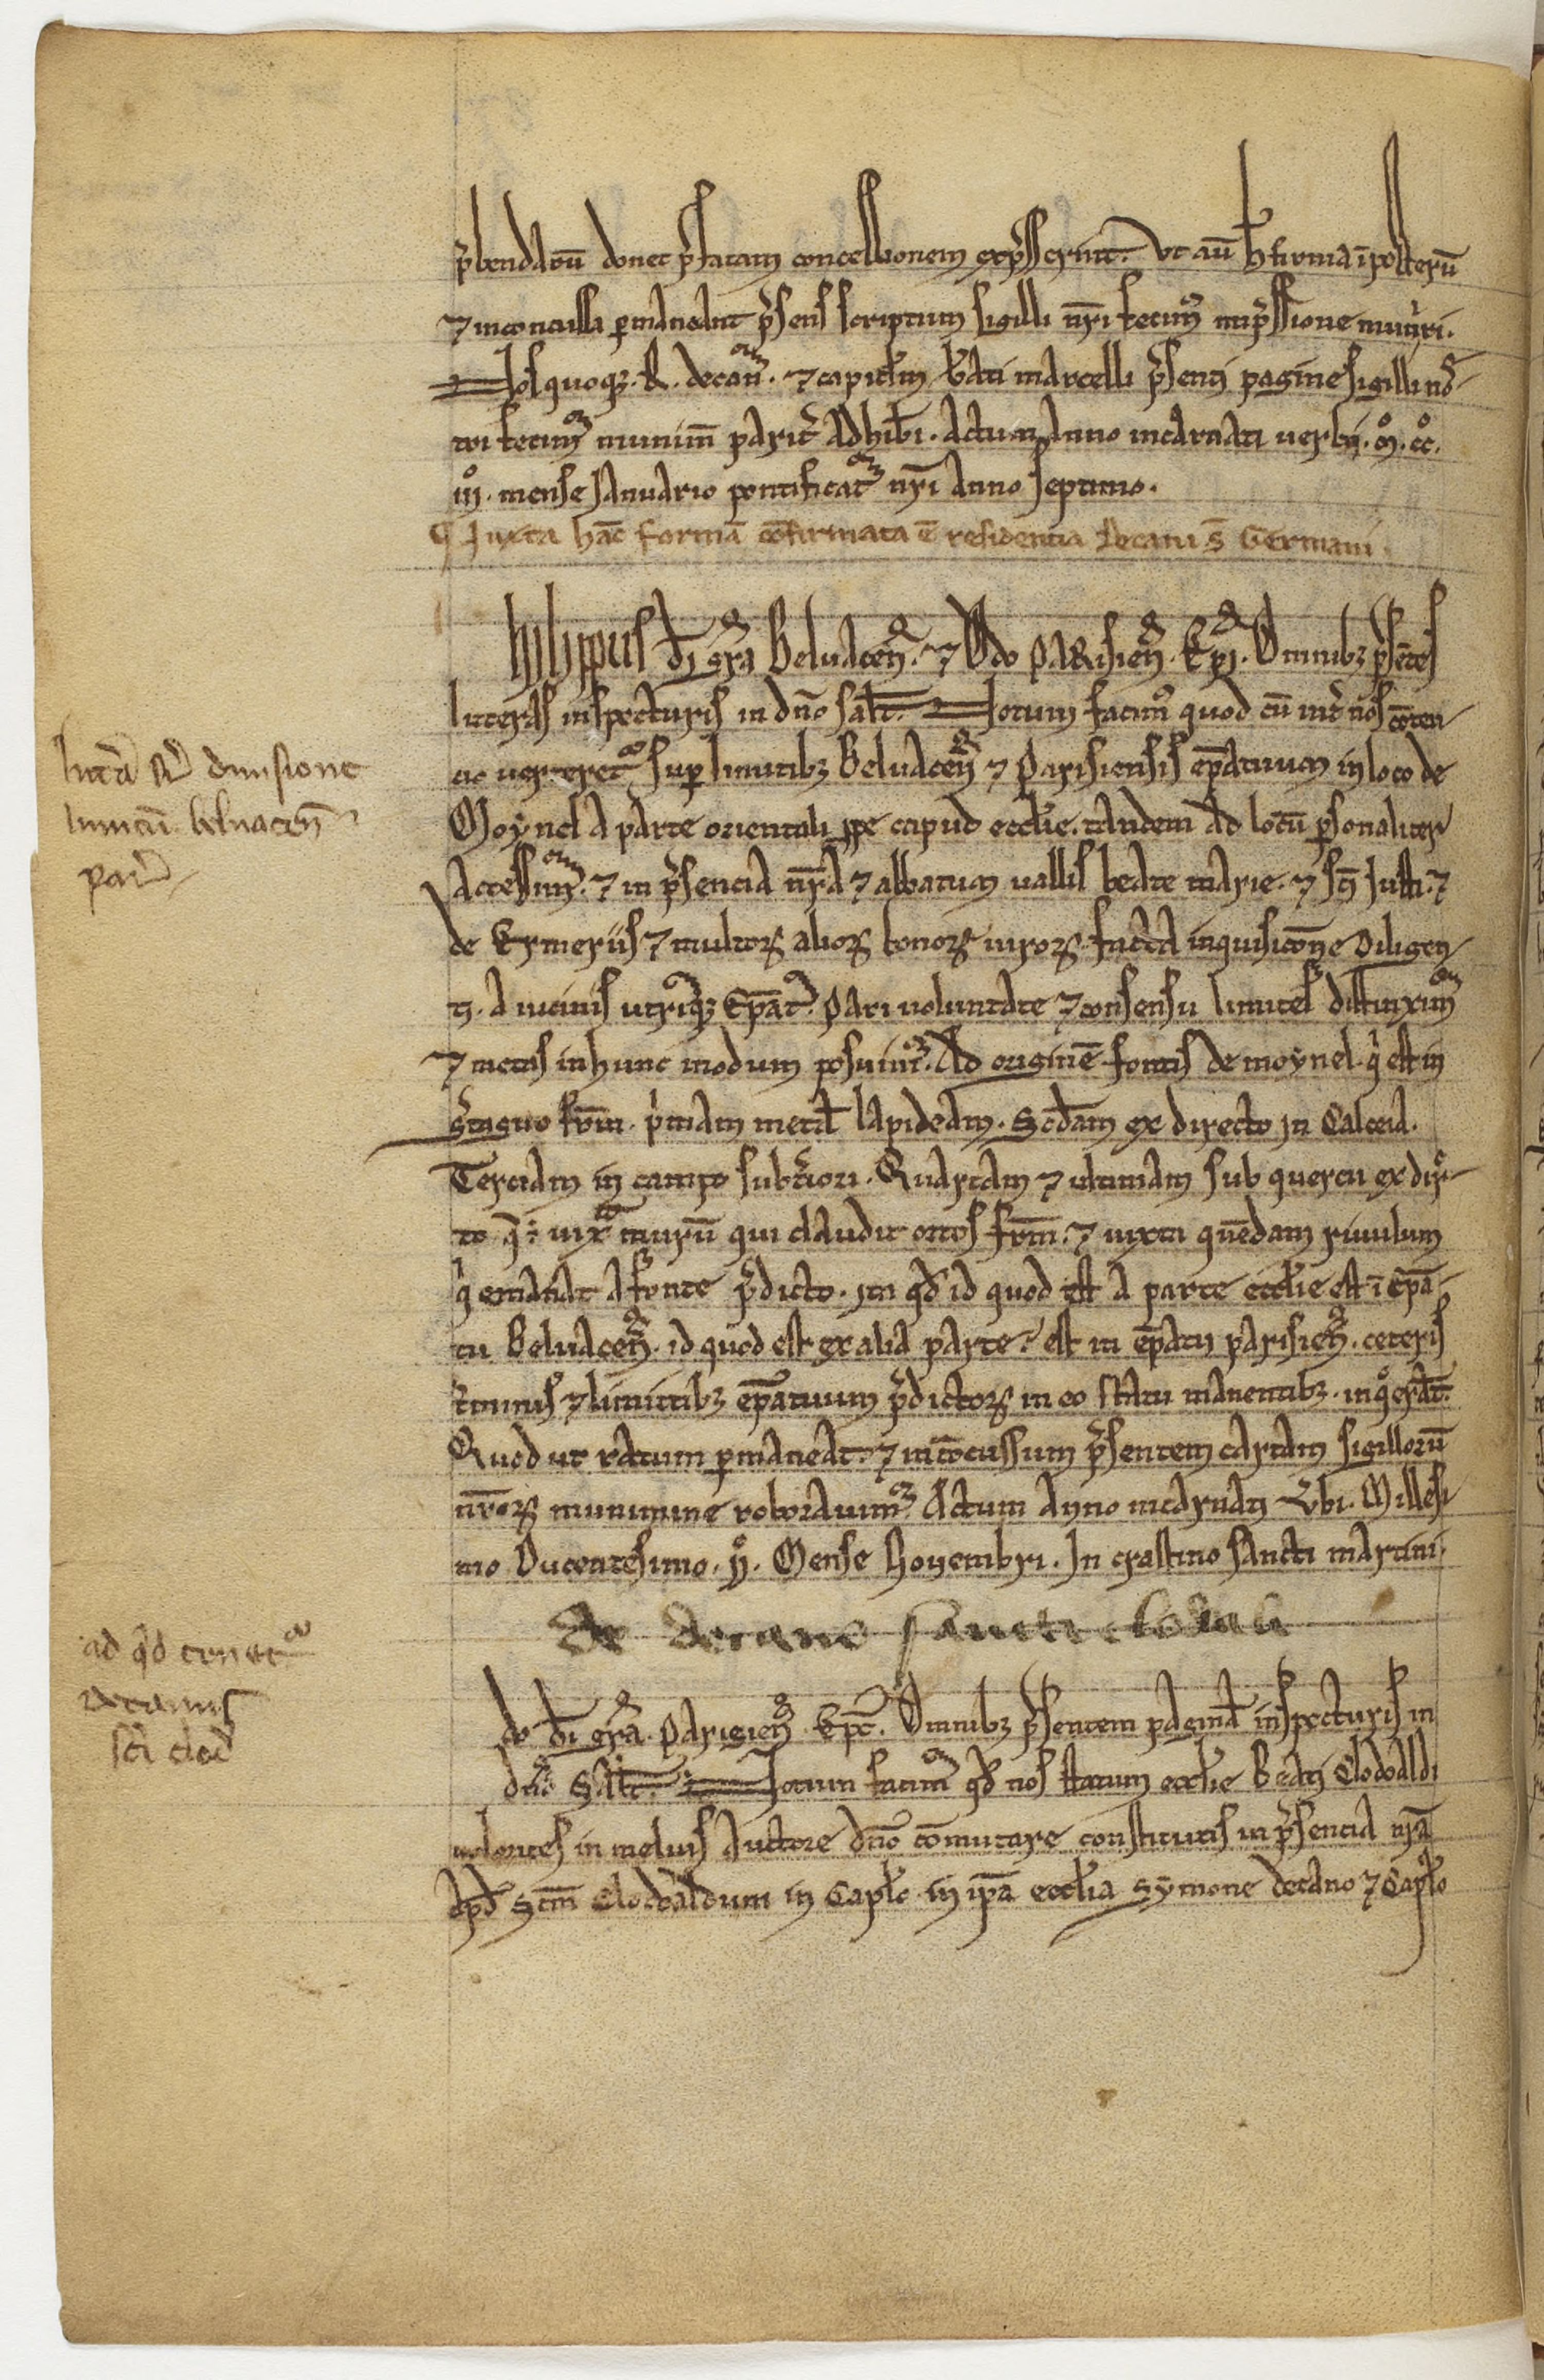 p̄bendarū donec p̄fatam concessionem exp̄sserint. Vt aū h̄ firma ī posterū
⁊ inconcussa ꝑmaneant p̄sens scriptum sigilli nr̄i fecimꝰ imp̄ssione muniri.
Nos quoqꝫ .R. decanꝰ. ⁊ capitl̄m b̄ati marcelli p̄senti pagine sigilli nos-
tri fecimꝰ munim̄ parit͛ adhib̄i. Actum anno incarnati uerbi. mͦ. ccͦ.
iijͦ. mense Januario pontificatꝰ nr̄i anno septimo.
¶ Juxta hāc formā cōfirmata ē residentia decani s̄ Germani.
hilippus dī gr̄a Beluacen̄. ⁊ Odo Parisien̄. Ep̄i. Omnibꝫ p̄sētes
litteras inspecturis in dn̄o salt̄. Notum facimꝰ quod cū int͛ nos cōten-
cio uerteretᷣ suꝑ limitibꝫ Beluacen̄ ⁊ Parisiensis ep̄atuum in loco de
Moynel a parte orientali ꝓpe capud eccl̄ie. tandem ad locū ꝑsonaliter
accessimꝰ. ⁊ in p̄sencia nr̄a ⁊ abbatum uallis beate marie. ⁊ sc̄i Justi. ⁊
de Ermeriis ⁊ multoꝝ alioꝝ bonoꝝ uiroꝝ. facta inquisicōne diligen-
ti. a uicinis utriusqꝫ Ep̄atꝰ. Pari uoluntate ⁊ consensu limites distinximꝰ
⁊ metas in hunc modum posuimꝰ. Ad originē fontis de moynel. q̇ est in
stagno fr̄m. ṗmam metā lapideam. Scd̄am ex directo in Calceia.
Terciam in campo subt͛iori. Quartam ⁊ ultimam sub quercu ex direc-
to q̄ ÷ iuxᵗᵃ murū qui claudit ortos fr̄m. ⁊ iuxta quēdam riuulum
q̇ emanat a fonte p̄dicto. ita qd̄ id quod est a parte eccl̄ie est ī ep̄a-
tu Beluacen̄. id quod est ex alia parte? est in ep̄atu parisien̄. ceteris
t͛minis ⁊ limitibꝫ ep̄atuum p̄dictoꝝ in eo statu manentibꝫ. in qͦ erāt.
Quod ut ratum ꝑmaneat. ⁊ incōcussum p̄sentem cartam sigillorū
nr̄oꝝ munimine roborauimꝰ. Actum anno incarnati ūbi. Millesi-
mo Ducentesimo. ijͦ. Mense Nouembri. In crastino sancti martini.
De decano sancti clodaldi
do dī gr̄a. Parisien̄. Ep̄c. Omnibꝫ p̄sentem paginā inspecturis in
dn̄o Salt̄. Notum facimꝰ qd̄ nos statum eccl̄ie Beati Clodoaldi
uolentes in melius auctore dn̄o cōmutare constitutis in p̄sencia nr̄a
apd̄ Scm̄ Clodoaldum in Capl̄o in ip̄a eccl̄ia Symone decano ⁊ Capl̄o
litt͛a sr̄ diuisione
limitū beluacen̄
par͛
ad qd̄ tenetᷣ
decanus
sc̄i clod͛